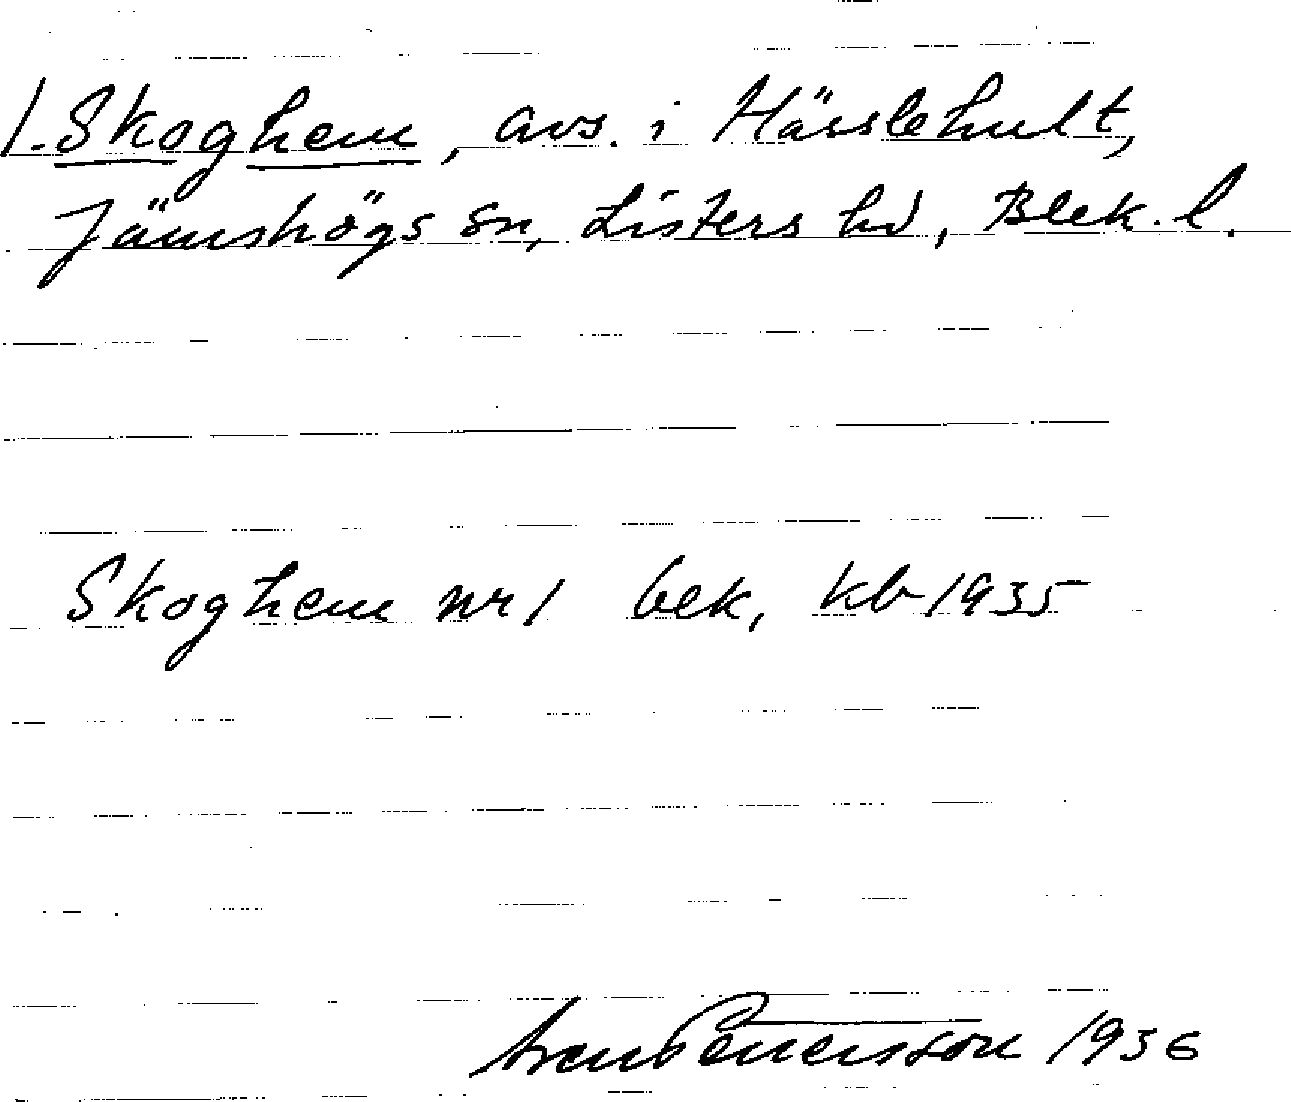 1. Skoghem, avs. i Härslehult,
Jämshögs sn, Listers hd, Blek. l.
Skoghem nr 1 bek, kb 1935
1936